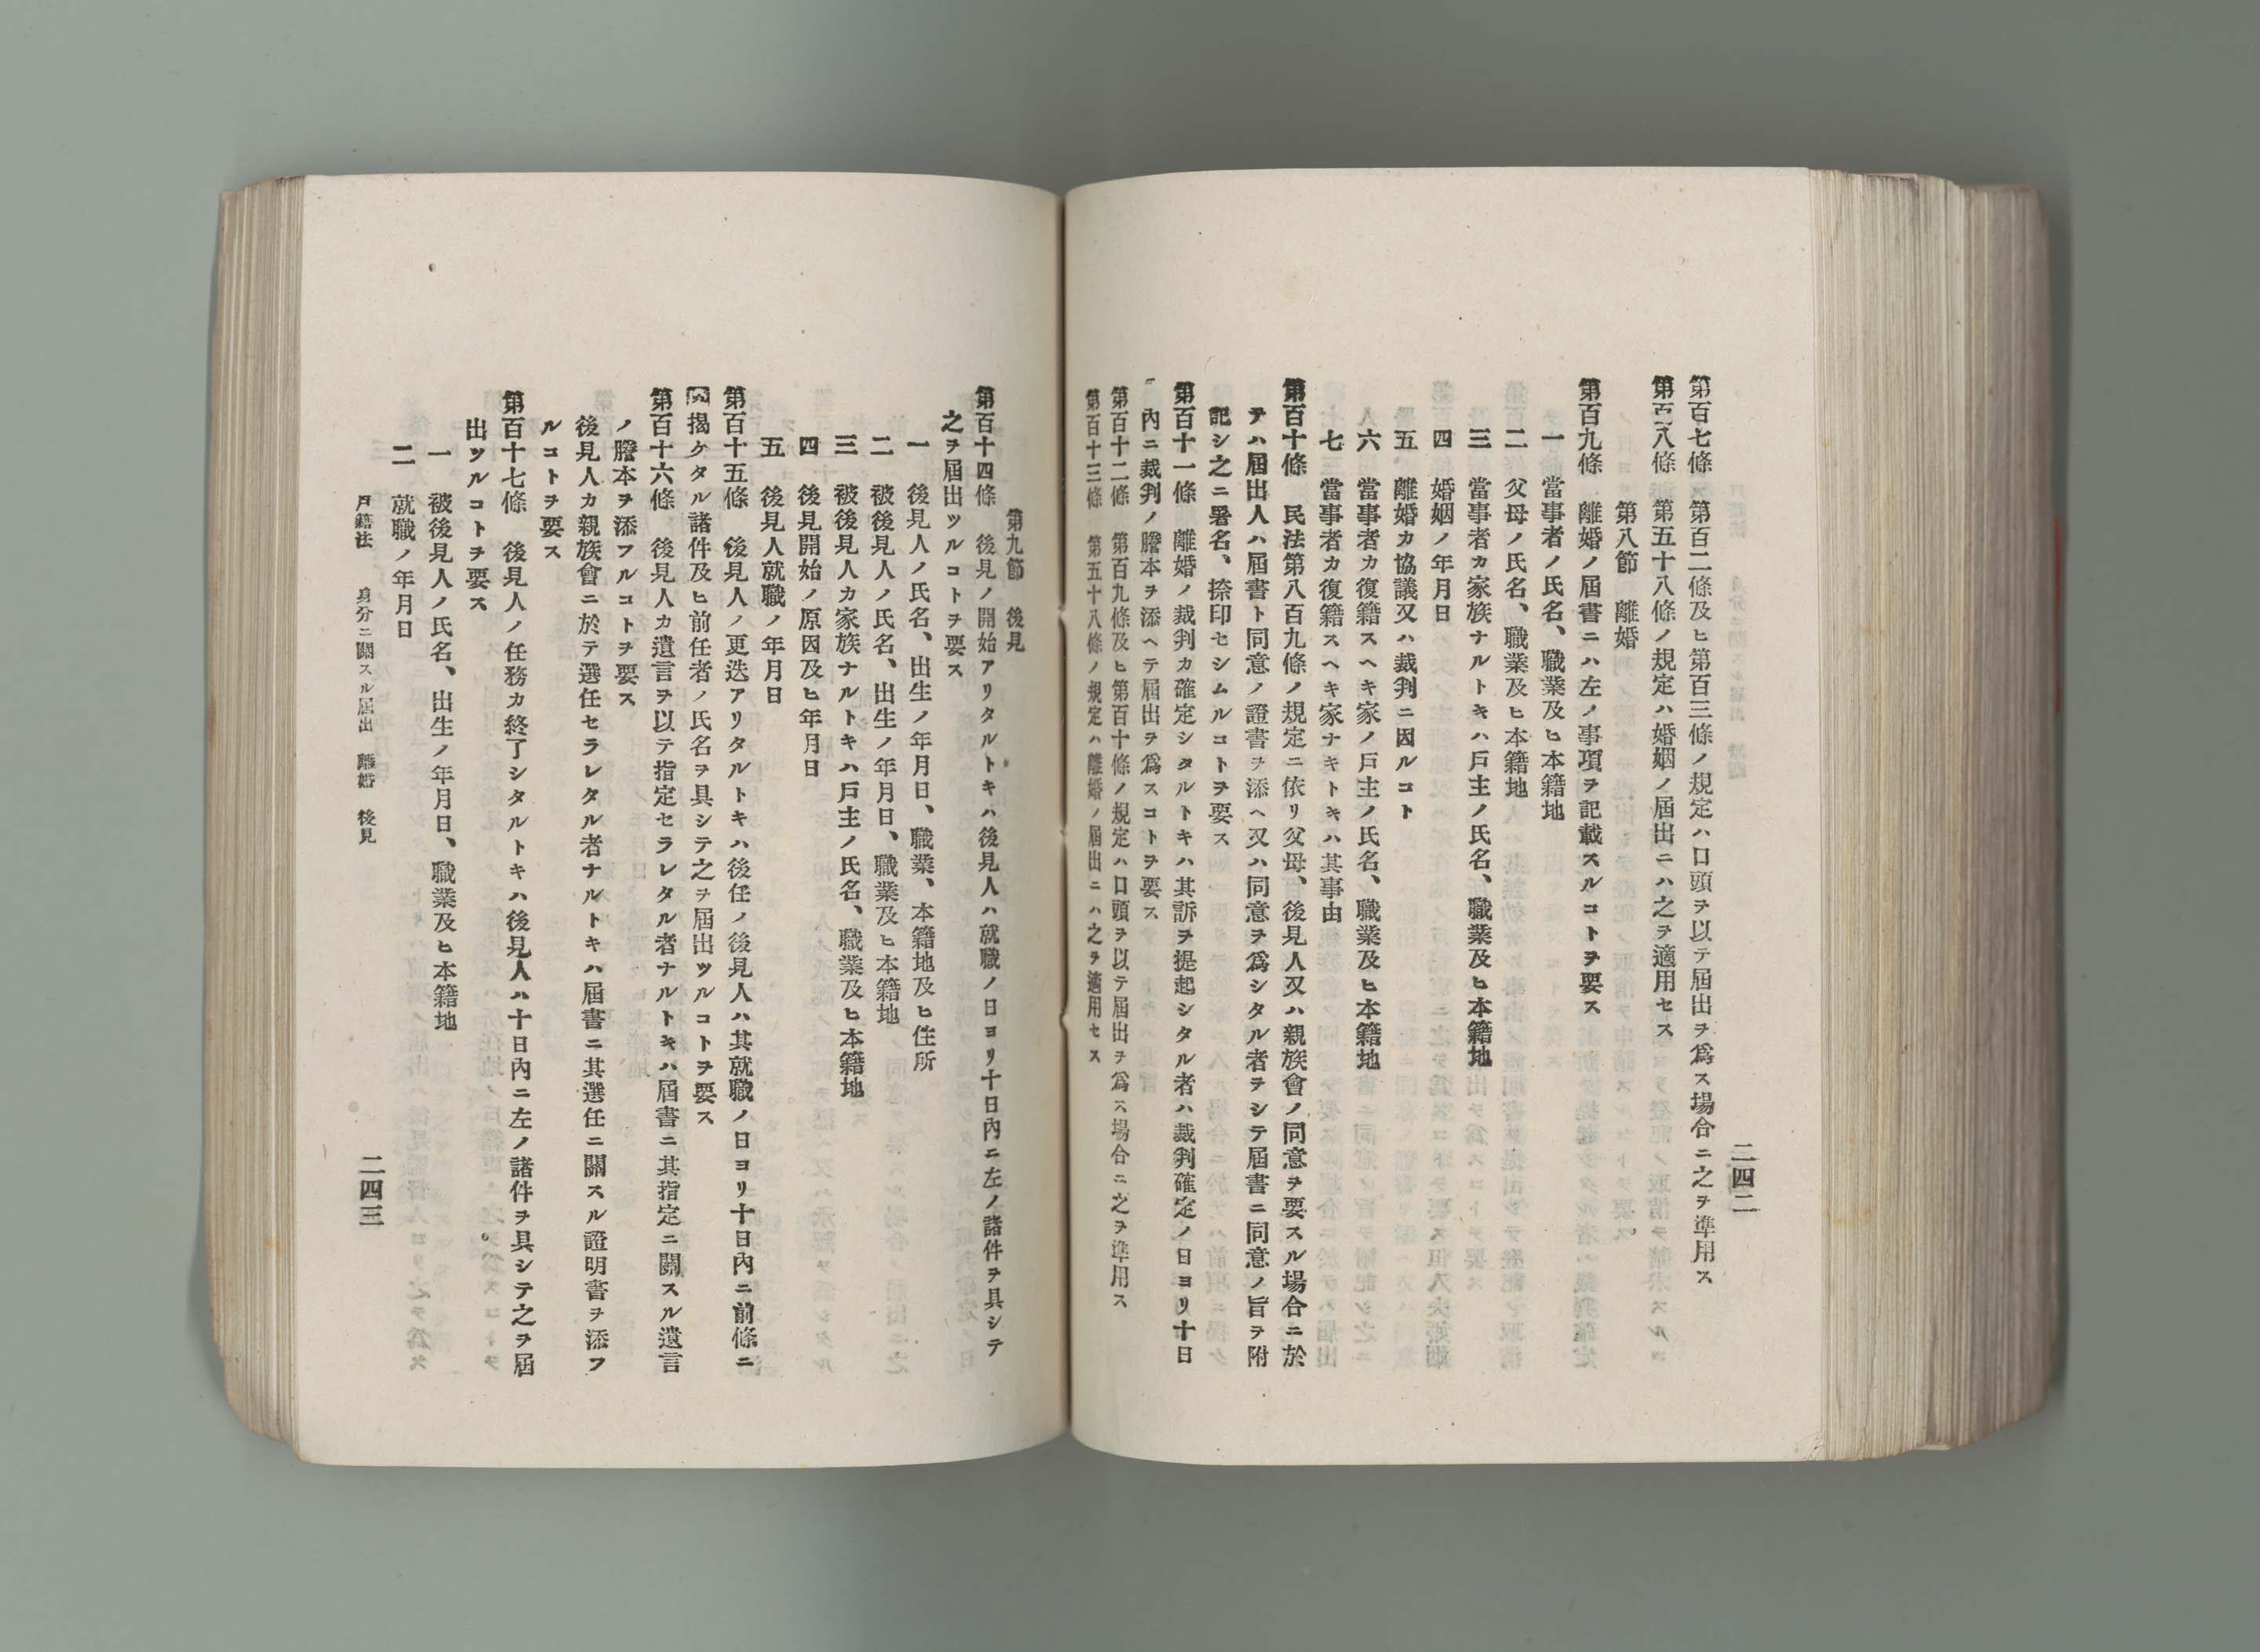 二四二
第百七條　第百二條及ヒ第百三條ノ規定ハ口頭ヲ以テ屆出ヲ爲ス場合ニ之ヲ準用ス
第百八條　第五十八條ノ規定ハ婚姻ノ屆出ニハ之ヲ適用セス
第八節　離婚
第百九條　離婚ノ屆書ニハ左ノ事項ヲ記載スルコトヲ要ス
一　當事者ノ氏名、職業及ヒ本籍地
二　父母ノ氏名、職業及ヒ本籍地
三　當事者カ家族ナルトキハ戸主ノ氏名、職業及ヒ本籍地
四　婚姻ノ年月日
五　離婚カ協議又ハ裁判ニ因ルコト
六　當事者カ復籍スヘキ家ノ戸主ノ氏名、職業及ヒ本籍地
七　當事者カ復籍スヘキ家ナキトキハ其事由
第百十條　民法第八百九條ノ規定ニ依リ父母、後見人又ハ親族會ノ同意ヲ要スル場合ニ於
テハ屆出人ハ屆書ト同意ノ證書ヲ添ヘ又ハ同意ヲ爲シタル者ヲシテ屆書ニ同意ノ旨ヲ附
記シ之ニ署名、捺印セシムルコトヲ要ス
第百十一條　離婚ノ裁判カ確定シタルトキハ其訴ヲ提起シタル者ハ裁判確定ノ日ヨリ十日
內ニ裁判ノ謄本ヲ添ヘテ屆出ヲ爲スコトヲ要ス
第百十二條　第百九條及ヒ第百十條ノ規定ハ口頭ヲ以テ屆出ヲ爲ス場合ニ之ヲ準用ス
第百十三條　第五十八條ノ規定ハ離婚ノ屆出ニハ之ヲ適用セス
第九節　後見
第百十四條　後見ノ開始アリタルトキハ後見人ハ就職ノ日ヨリ十日內ニ左ノ諸件ヲ具シテ
之ヲ屆出ツルコトヲ要ス
一　後見人ノ氏名、出生ノ年月日、職業、本籍地及ヒ住所
二　被後見人ノ氏名、出生ノ年月日、職業及ヒ本籍地
三　被後見人カ家族ナルトキハ戸主ノ氏名、職業及ヒ本籍地
四　後見開始ノ原因及ヒ年月日
五　後見人就職ノ年月日
第百十五條　後見人ノ更迭アリタルトキハ後任ノ後見人ハ其就職ノ日ヨリ十日內ニ前條ニ
揭ケタル諸件及ヒ前任者ノ氏名ヲ具シテ之ヲ屆出ツルコトヲ要ス
第百十六條　後見人カ遺言ヲ以テ指定セラレタル者ナルトキハ屆書ニ其指定ニ關スル遺言
ノ謄本ヲ添フルコトヲ要ス
後見人カ親族會ニ於テ選任セラレタル者ナルトキハ屆書ニ其選任ニ關スル證明書ヲ添フ
ルコトヲ要ス
第百十七條　後見人ノ任務カ終了シタルトキハ後見人ハ十日內ニ左ノ諸件ヲ具シテ之ヲ屆
出ツルコトヲ要ス
一　被後見人ノ氏名、出生ノ年月日、職業及ヒ本籍地
二　就職ノ年月日
戸籍法　身分ニ關スル屆出　離婚　後見
二四三